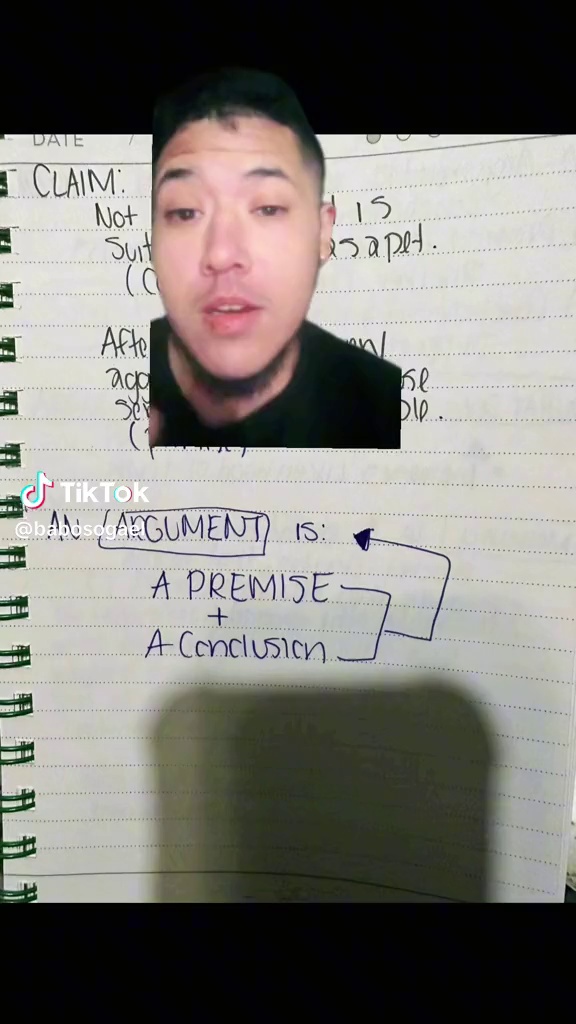 DATE /
CLAIM:
Not IS
Suit as a pet.
(C
Afte en/
ago se
Ser ble.
(p
TikTok
@babosogael
AN ARGUMENT IS:
A PREMISE
+
A Conclusion